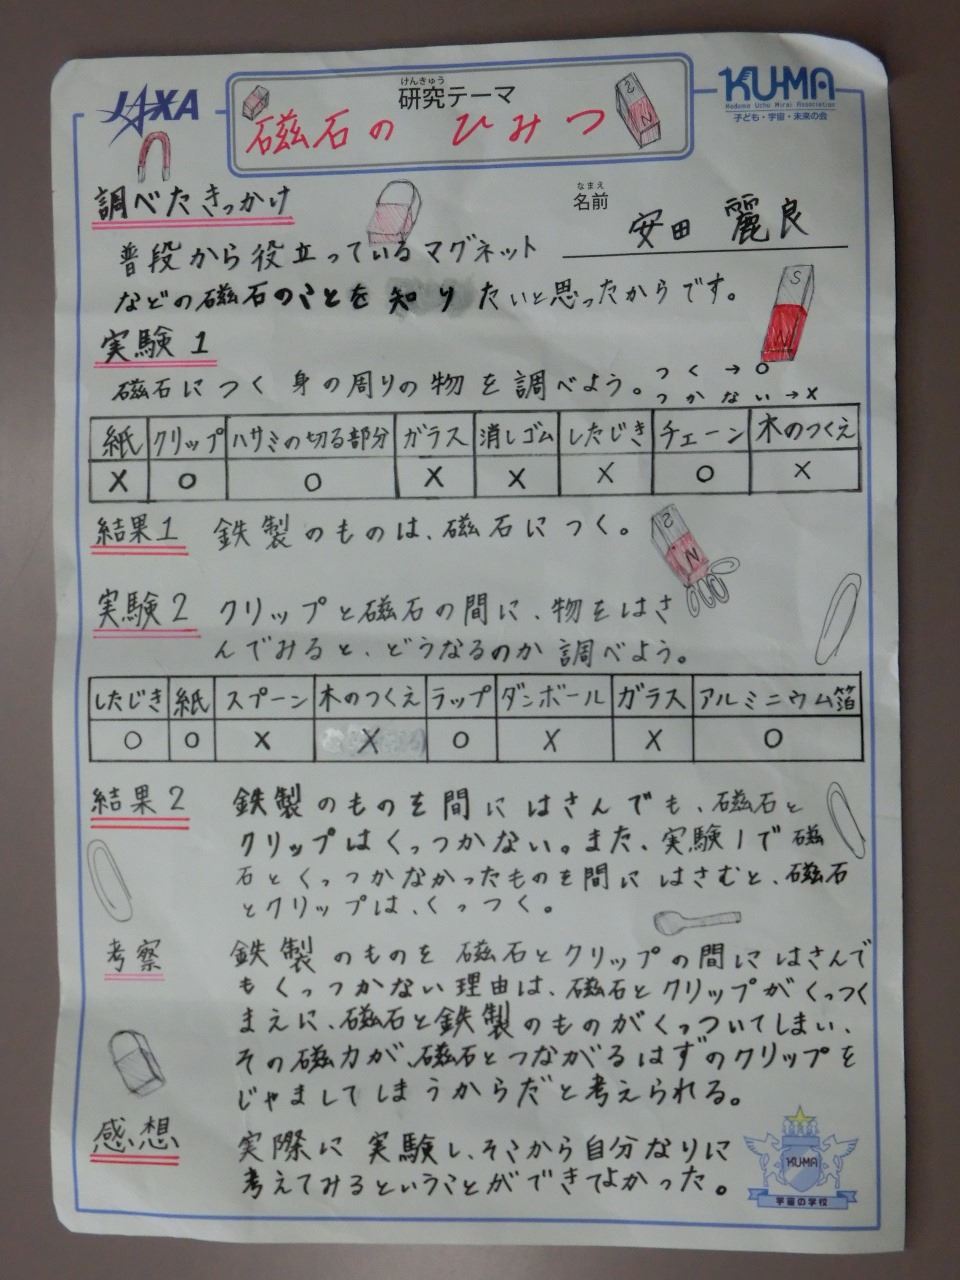 JAXA
けんきゅう
研究テーマ
磁石の ひみつ
KU-MA
Kodomo Uchu Mirai Association
子ども・宇宙・未来の会
調べたきっかけ
なまえ
名前
安田 麗良
普段から役立っているマグネット
などの磁石のことを知りたいと思ったからです。
実験1
磁石につく身の周りの物を調べよう。
つく→○
つかない→×
紙 クリップ ハサミの切る部分 ガラス 消しゴム したじき チェーン 木のつくえ
× ○ ○ × × × ○ ×
結果1 鉄製のものは、磁石につく。
実験2 クリップと磁石の間に、物をはさ
んでみると、どうなるのか調べよう。
したじき 紙 スプーン 木のつくえ ラップ ダンボール ガラス アルミニウム箔
○ ○ × × ○ × × ○
結果2 鉄製のものを間にはさんでも、磁石と
クリップはくっつかない。また、実験1で磁
石とくっつかなかったものを間にはさむと、磁石
とクリップは、くっつく。
考察 鉄製のものを磁石とクリップの間にはさんで
もくっつかない理由は、磁石とクリップがくっつく
まえに、磁石と鉄製のものがくっついてしまい、
その磁力が、磁石とつながるはずのクリップを
じゃましてしまうからだと考えられる。
感想 実際に実験し、そこから自分なりに
考えてみるということができてよかった。
S
N
KU-MA
宇宙の学校